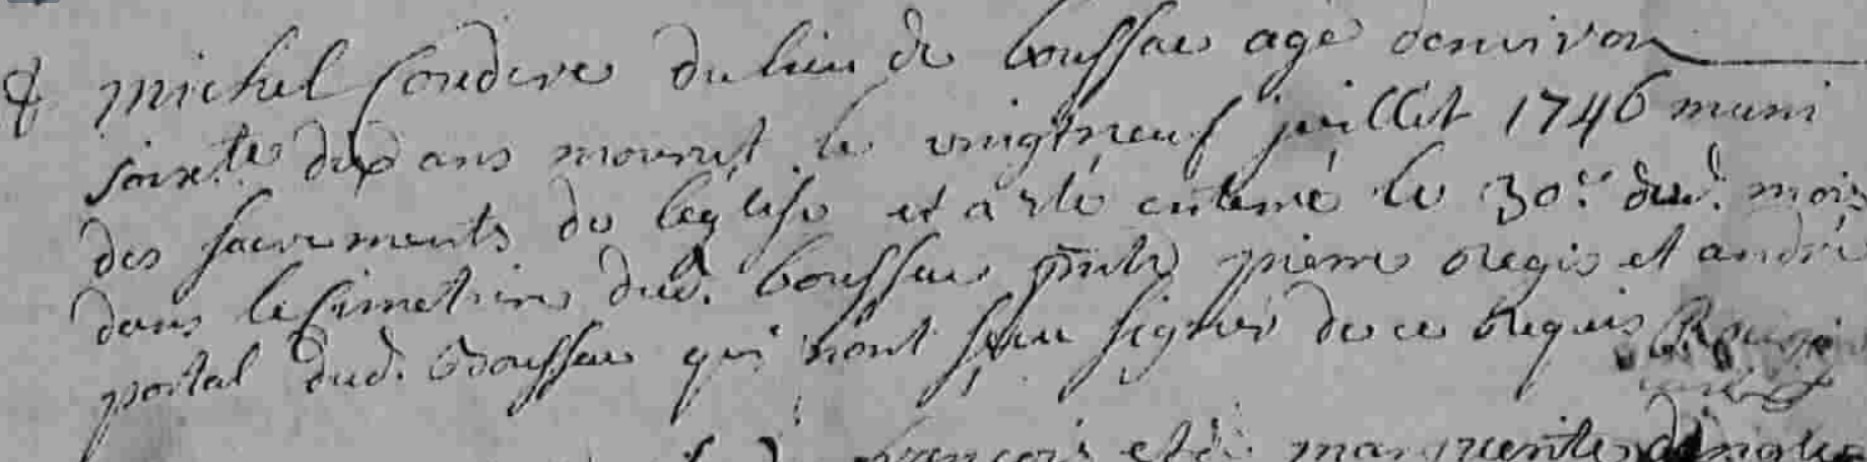 michel Couderc du lieu de boussac agé denviron
soixte dix ans mourut le vingtneuf juillet 1746 muni
des sacrements de leglise et a esté enterré le 30e dud. mois
dans le cimetiere dud. boussac pnts pierre regis et andré
portal dud. boussac qui n'ont sçeu signer de ce requis
françois et de marguerite